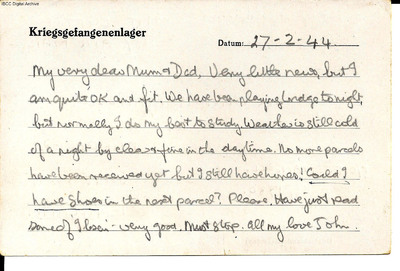 IBCC Digital Archive
Kriegsgefangenenlager
Datum: 27-2-44
My very dear Mum & Dad, Very little news, but I
am quite OK and fit. We have been playing bridge tonight,
but normally I do my best to study. Weather is still cold
of a night by clear & fine in the daytime. No more parcels
have been received yet but I still have hopes! Could I
have shoes in the next parcel? Please. Have just read
some of very good. Must stop. All my love John.